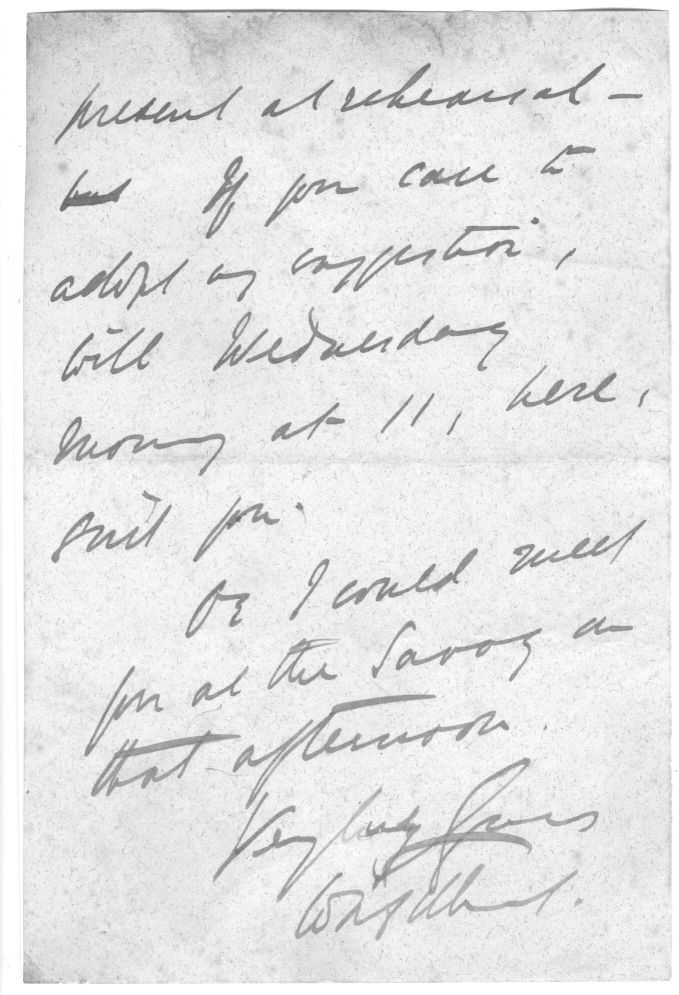 present at rehearsal –
but If you care to
adopt my suggestion,
will Wednesday
morning at 11, here,
suit you.
Or I could meet
you at the Savoy on
that afternoon.
Very truly Yours
WSGilbert.